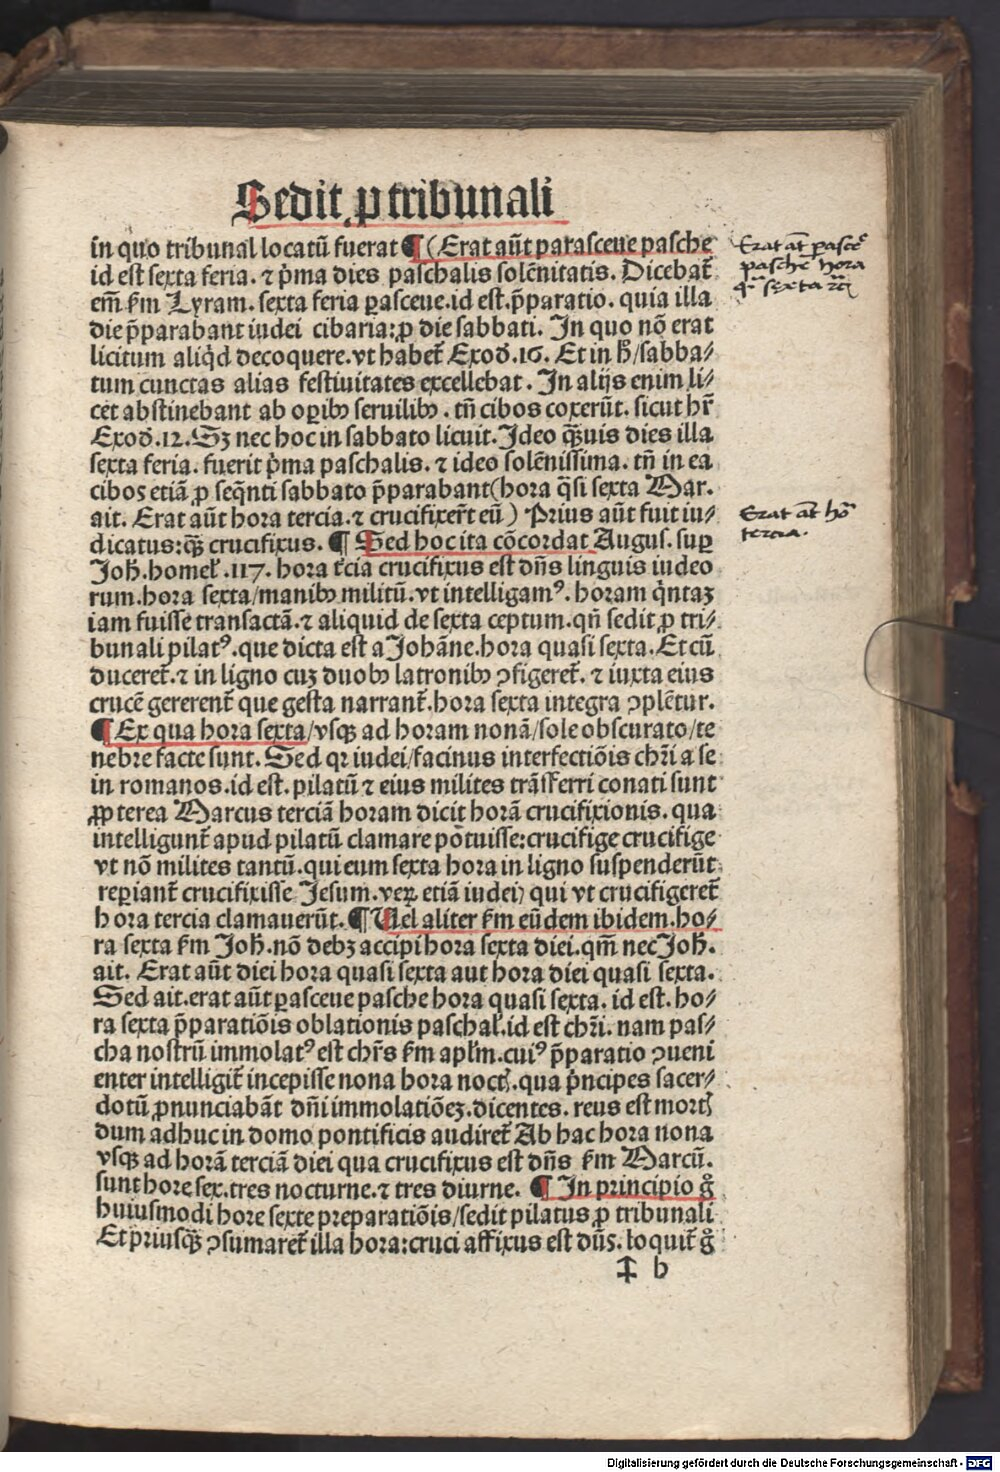 Sedit ꝓ tribunali
in quo tribunal locatū fuerat ¶ (Erat aūt parasceue pasche
id est sexta feria. ⁊ p̄ma dies paschalis solēnitatis. Dicebat̄
em̄ ẜm Lyram. sexta feria ꝑasceue. id est. p̄paratio. quia illa
die p̄parabant iudei cibaria: ꝓ die sabbati. In quo nō erat
licitum aliq̇d decoquere. vt habet̄ Exoď. 16. Et in ħ/ sabba⸗
tum cunctas alias festiuitates excellebat. In alijs enim li⸗
cet abstinebant ab oꝑibꝰ seruilibꝰ. tñ cibos coxerūt. sicut hr̄
Exoď. 12. Sꝫ nec hoc in sabbato licuit. Ideo qᷓuis dies illa
sexta feria. fuerit p̄ma paschalis. ⁊ ideo solēnissima. tñ in ea
cibos etiā ꝓ seq̄nti sabbato p̄parabant (hora q̄si sexta Mar.
ait. Erat aūt hora tercia. ⁊ crucifixer̄t eū) Prius aūt fuit iu⸗
dicatus: qᷓ crucifixus. ¶ Sed hoc ita cōcordat Augus. suꝑ
Joħ. homeł. 117. hora t̄cia crucifixus est dñs linguis iudeo
rum. hora sexta/ manibꝰ militū. vt intelligamꝰ. horam q̇ntaꝫ
iam fuisse transactā. ⁊ aliquid de sexta ceptum. qñ sedit ꝓ tri⸗
bunali pilatꝰ. que dicta est a Johāne. hora quasi sexta. Et cū
duceret̄. ⁊ in ligno cuꝫ duobꝰ latronibꝰ ꝯfigeret̄. ⁊ iuxta eius
crucē gererent̄ que gesta narrant̄. hora sexta integra ꝯplētur.
¶ Ex qua hora sexta/ vsqꝫ ad horam nonā/ sole obscurato/ te
nebre facte sunt. Sed qꝛ iudei/ facinus interfectiōis chr̄i a se
in romanos. id est. pilatū ⁊ eius milites trāsferri conati sunt
ꝓpterea Marcus terciā horam dicit horā crucifixionis. qua
intelligunt̄ apud pilatū clamare potuisse: crucifige crucifige
vt nō milites tantū. qui eum sexta hora in ligno suspenderūt
reꝑiant̄ crucifixisse Jesum. veꝝ etiā iudei/ qui vt crucifigeret̄
hora tercia clamauerūt. ¶ Uel aliter ẜm eūdem ibidem. ho⸗
ra sexta ẜm Joħ. nō debꝫ accipi hora sexta diei. qm̄ nec Joħ.
ait. Erat aūt diei hora quasi sexta aut hora diei quasi sexta.
Sed ait. erat aūt ꝑasceue pasche hora quasi sexta. id est. ho⸗
ra sexta p̄paratiōis oblationis paschał. id est chr̄i. nam pas⸗
cha nostrū immolatꝰ est chr̄s ẜm apl̄m. cuiꝰ p̄paratio ꝯueni
enter intelligit̄ incepisse nona hora noctꝭ. qua p̄ncipes sacer⸗
dotū ꝓnunciabāt dn̄i immolatiōeꝫ. dicentes. reus est mortꝭ
dum adhuc in domo pontificis audiret̄ Ab hac hora nona
vsqꝫ ad horā terciā diei qua crucifixus est dñs ẜm Marcū.
sunt hore sex. tres nocturne. ⁊ tres diurne. ¶ In principio g̊
huiusmodi hore sexte preparatiōis/ sedit pilatus ꝓ tribunali
Et priusqᷓ ꝯsumaret̄ illa hora: cruci affixus est dn̄s. loquit̄ g̊
‡ b
Erat at̄ ꝑasce
pasche hora
sexta
Erat at̄ ho
tercia.
Digitalisierung gefördert durch die Deutsche Forschungsgemeinschaft - DFG